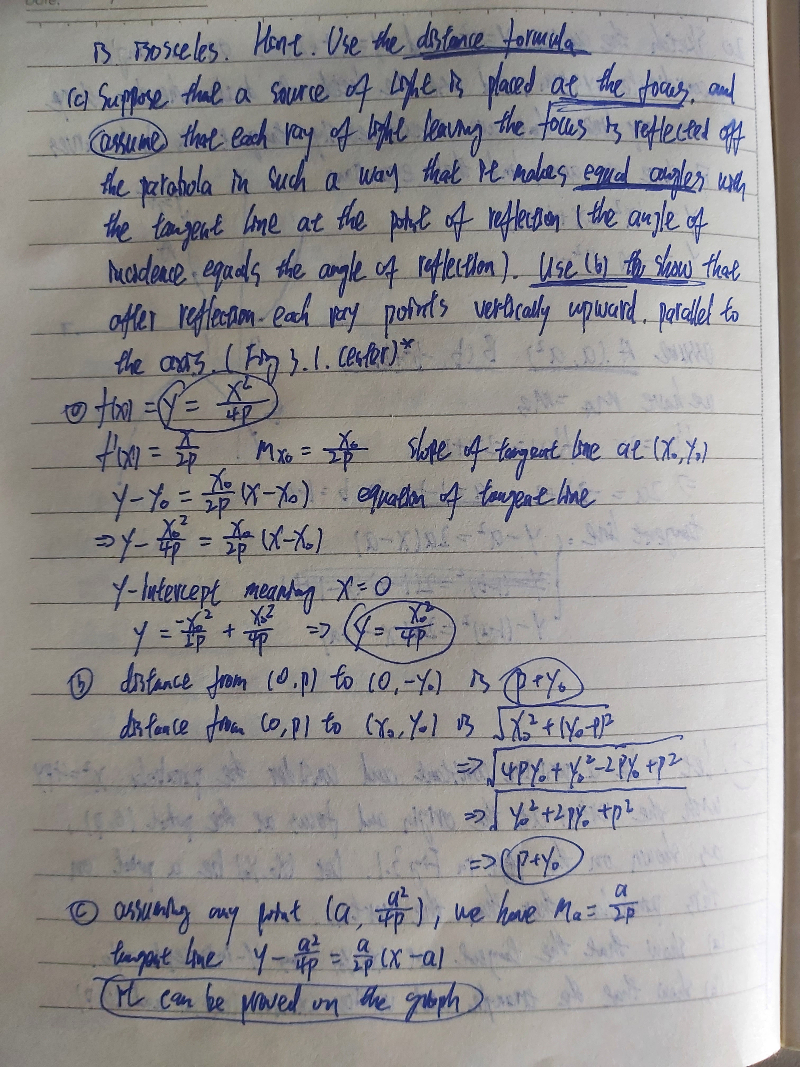 is isosceles. Hint. Use the distance formula
(c) Suppose that a source of light is placed at the focus, and
assume that each ray of light leaving the focus is reflected off
the parabola in such a way that it makes equal angles with
the tangent line at the point of reflection (the angle of
incidence equals the angle of reflection). Use (b) to show that
after reflection each ray points vertically upward. parallel to
the axis. (Fig 3.1. center)*
ⓐ f(x) = y = x²/4p
f'(x) = x/2p m_{x₀} = x₀/2p slope of tangent line at (x₀, y₀)
y-y₀ = x₀/2p (x-x₀) equation of tangent line
⇒ y - x₀²/4p = x₀/2p (x-x₀)
y-intercept meaning x=0
y = -x₀²/2p + x₀²/4p ⇒ y = x₀²/4p
ⓑ distance from (0,p) to (0,-y₀) is p+y₀
distance from (0,p) to (x₀, y₀) is √(x₀²+(y₀-p)²
⇒ √(4py₀+y₀²-2py₀+p²
⇒ √(y₀²+2py₀+p²
⇒ p+y₀
ⓒ assuming any point (a, a²/4p), we have m_a = a/2p
tangent line y - a²/4p = a/2p (x-a)
It can be proved on the graph